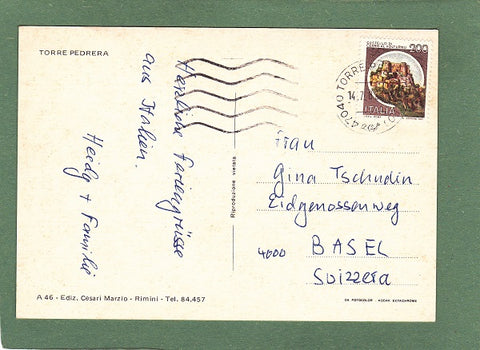 TORRE PEDRERA
Herzliche Feriengrüsse
aus Italien.
Heidy + Familie
Riproduzione vietata
200
ITALIA
47040 TORRE
14.7
Frau
Gina Tschudin
Eidgenossenweg
4000 BASEL
Svizzera
A 46 - Ediz. Cesari Marzio - Rimini - Tel. 84.457